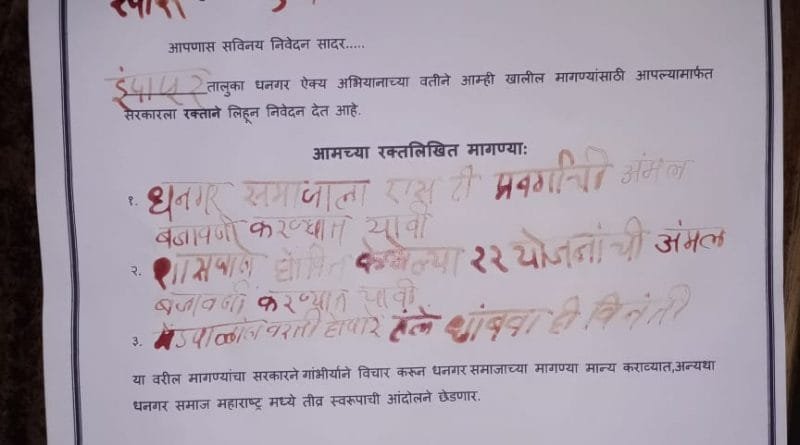 आपणास सविनय निवेदन सादर.....
इंदापूर तालुका धनगर ऐक्य अभियानाच्या वतीने आम्ही खालील मागण्यांसाठी आपल्यामार्फत
सरकारला रक्ताने लिहून निवेदन देत आहे.
आमच्या रक्तलिखित मागण्या:
१. धनगर समाजाला एस टी प्रवर्गाची अंमल
बजावणी करण्यात यावी
२. शासनाने घोषित केलेल्या २२ योजनांची अंमल
बजावणी करण्यात यावी
३. मेंढपाळांवरती होणारे हल्ले थांबवा ही विनंती
या वरील मागण्यांचा सरकारने गांभीर्याने विचार करून धनगर समाजाच्या मागण्या मान्य कराव्यात,अन्यथा
धनगर समाज महाराष्ट्र मध्ये तीव्र स्वरूपाची आंदोलने छेडणार.